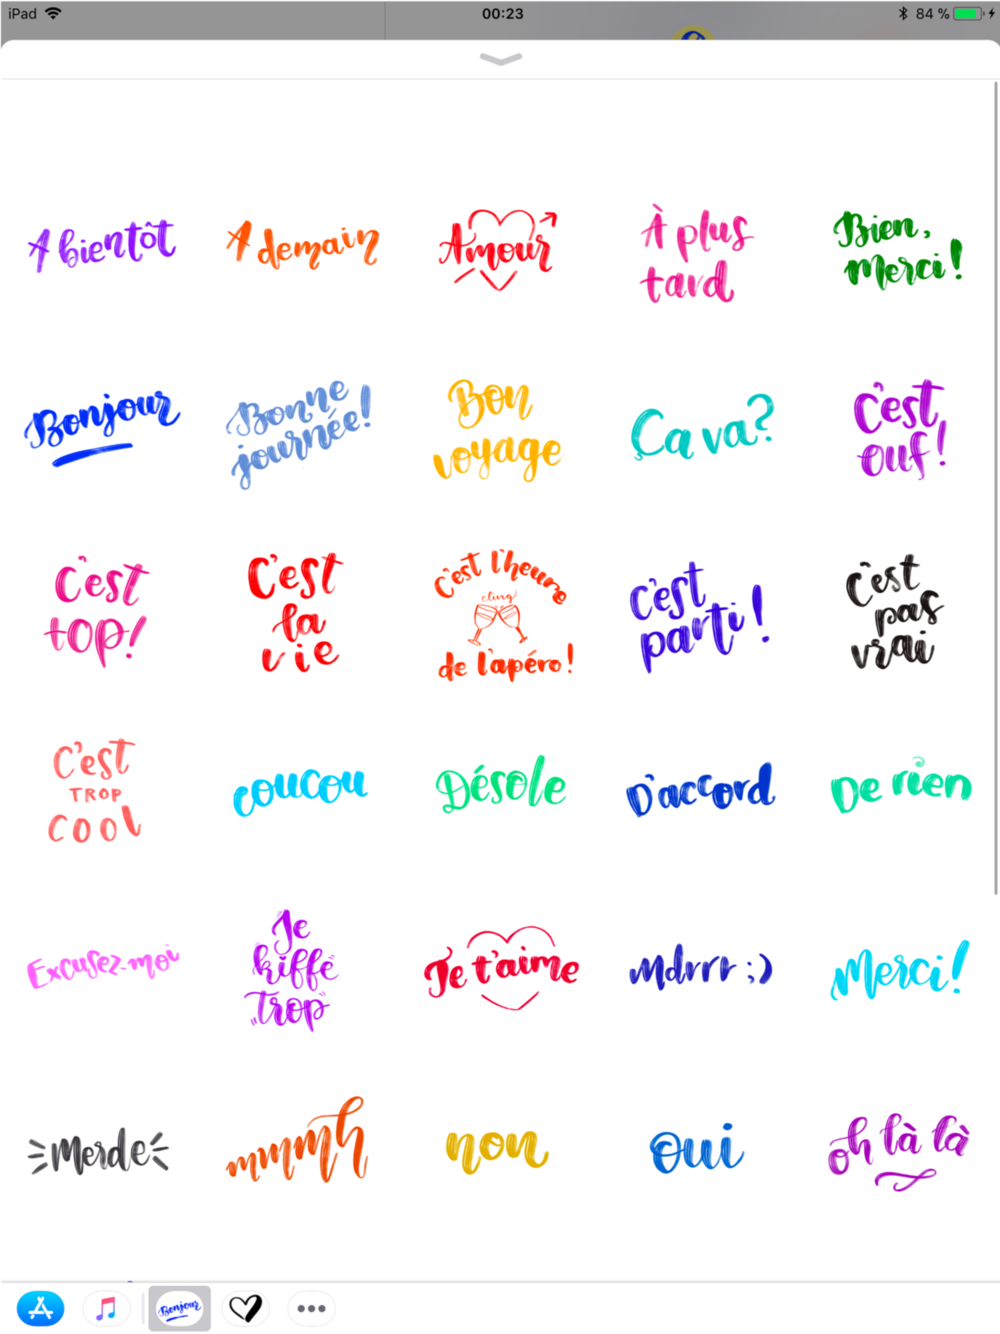 iPad 00:23 84 %
A bientôt
A demain
Amour
À plus
tard
Bien,
Merci!
Bonjour
Bonne
journée!
Bon
voyage
Ça va?
C'est
ouf!
C'est
top!
C'est
la
vie
C'est l'heure
cling
de l'apéro!
C'est
parti!
C'est
pas
vrai
C'est
TROP
COOL
coucou
Désole
D'accord
De rien
Excusez-moi
Je
kiffe
"trop"
Je t'aime
Mdrrr ;)
Merci!
Merde
mmmh
non
oui
oh là là
Bonjour